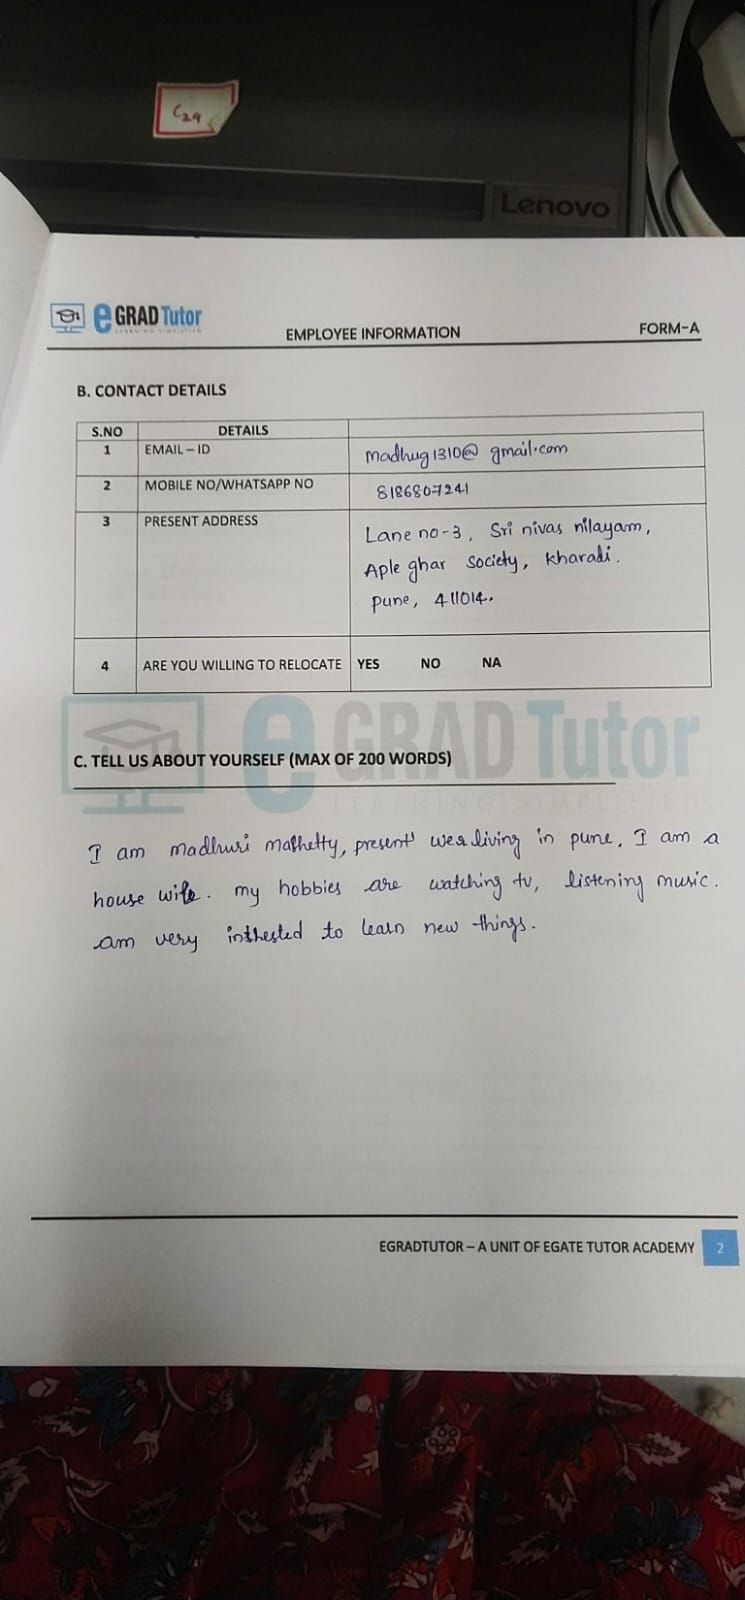 C29
Lenovo
e GRAD Tutor
LEARNING SIMPLIFIED
EMPLOYEE INFORMATION
FORM-A
B. CONTACT DETAILS
S.NO DETAILS
1 EMAIL – ID madhug1310@ gmail.com
2 MOBILE NO/WHATSAPP NO 8186807241
3 PRESENT ADDRESS Lane no-3, Sri nivas nilayam,
Aple ghar society, kharadi.
pune, 411014.
4 ARE YOU WILLING TO RELOCATE YES NO NA
e GRAD Tutor
LEARNING SIMPLIFIED
C. TELL US ABOUT YOURSELF (MAX OF 200 WORDS)
I am madhuri , present living in pune. I am a
house wife. my hobbies are watching tv, listening music.
am very inthested to learn new things.
EGRADTUTOR – A UNIT OF EGATE TUTOR ACADEMY 2